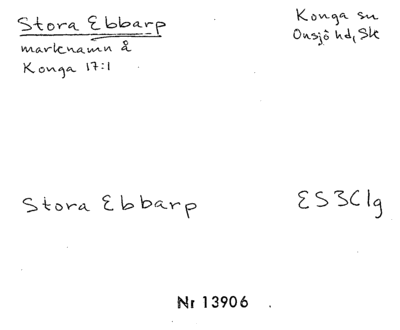 Stora Ebbarp
marknamn å
Konga 17:1
Konga sn
Onsjö hd, Sk
Stora Ebbarp
ES3Clg
Nr 13906